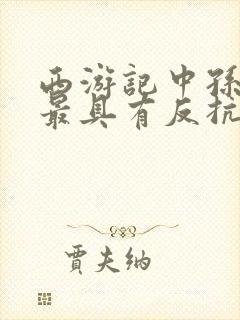 西游記中孫
最具有反抗
賈夫納